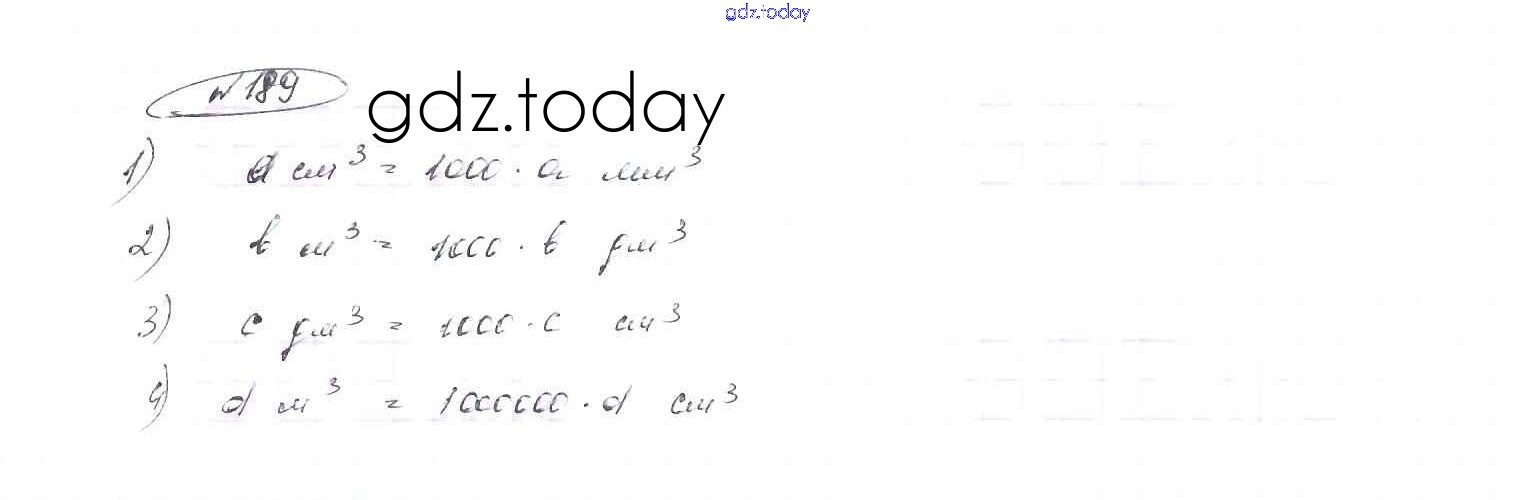 gdz.today
№189
gdz.today
1) a см³ = 1000 · a мм³
2) b м³ = 1000 · b дм³
3) c дм³ = 1000 · c см³
4) d м³ = 1000000 · d см³